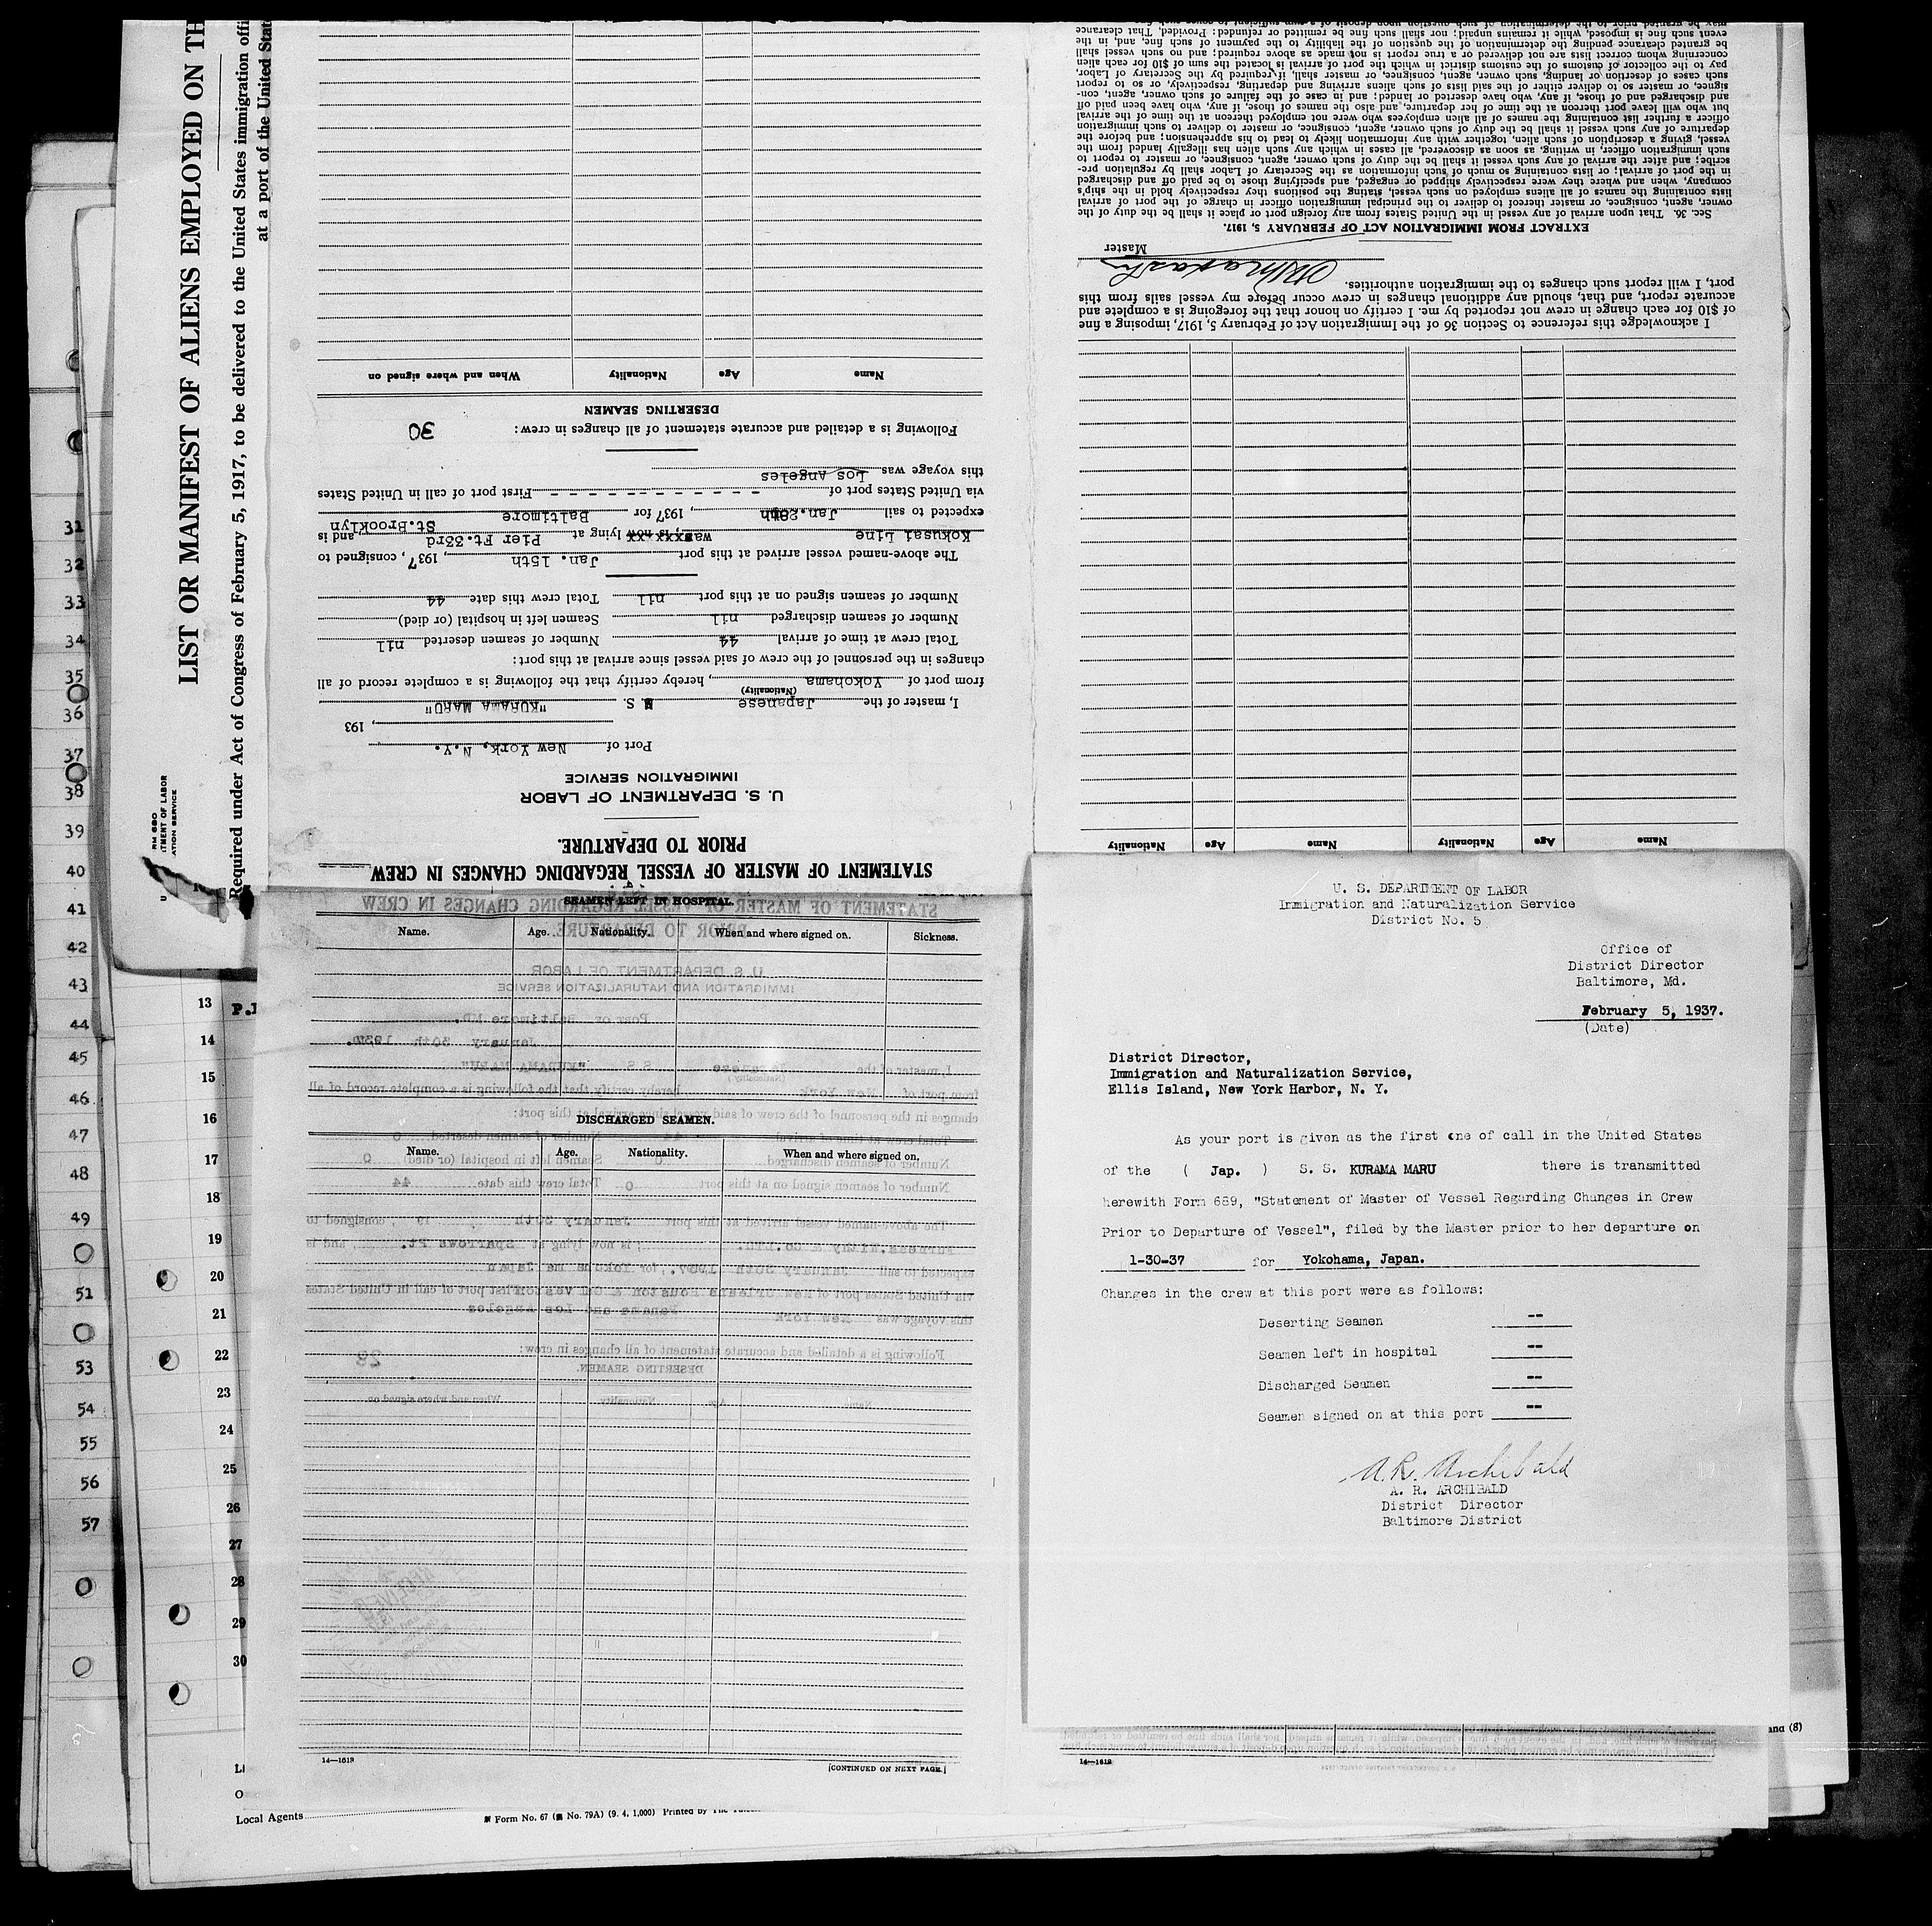 LIST OR MANIFEST OF ALIENS EMPLOYED ON TH
Required under Act of Congress of February 5, 1917, to be delivered to the United States immigration offi
at a port of the United Stat
RM 680
TMENT OF LABOR
ATION SERVICE
31
32
33
34
35
36
37
38
39
40
41
42
43
44
45
46
47
48
49
51
53
54
55
56
57
13
14
15
16
17
18
19
20
21
22
23
24
25
26
27
28
29
30
STATEMENT OF MASTER OF VESSEL REGARDING CHANGES IN CREW
PRIOR TO DEPARTURE.
U. S. DEPARTMENT OF LABOR
IMMIGRATION SERVICE
Port of New York, N.Y.
, 193
I, master of the Japanese M. S. "KURAMA MARU"
(Nationality)
from port of Yokohama, hereby certify that the following is a complete record of all
changes in the personnel of the crew of said vessel since arrival at this port:
Total crew at time of arrival 44 Number of seamen deserted nil
Number of seamen discharged nil Seamen left in hospital (or died)
Number of seamen signed on at this port nil Total crew this date 44
The above-named vessel arrived at this port Jan. 15th, 1937, consigned to
Kokusai Line was, is now lying at Pier Ft.33rd St.Brooklyn, and is
expected to sail Jan.28th, 1937 for Baltimore
via United States port of - - - - - - - - - - - First port of call in United States
this voyage was Los Angeles
Following is a detailed and accurate statement of all changes in crew: 30
DESERTING SEAMEN
Name Age Nationality When and where signed on
Name Age Nationality Name Age Nationality
I acknowledge this reference to Section 36 of the Immigration Act of February 5, 1917, imposing a fine
of $10 for each change in crew not reported by me. I certify on honor that the foregoing is a complete and
accurate report, and that, should any additional changes in crew occur before my vessel sails from this
port, I will report such changes to the immigration authorities.
Master
EXTRACT FROM IMMIGRATION ACT OF FEBRUARY 5, 1917.
Sec. 36. That upon arrival of any vessel in the United States from any foreign port or place it shall be the duty of the
owner, agent, consignee, or master thereof to deliver to the principal immigration officer in charge of the port of arrival
lists containing the names of all aliens employed on such vessel, stating the positions they respectively hold in the ship's
company, when and where they were respectively shipped or engaged, and specifying those to be paid off and discharged
in the port of arrival; or lists containing so much of such information as the Secretary of Labor shall by regulation pre-
scribe; and after the arrival of any such vessel it shall be the duty of such owner, agent, consignee, or master to report to
such immigration officer, in writing, as soon as discovered, all cases in which any such alien has illegally landed from the
vessel, giving a description of such alien, together with any information likely to lead to his apprehension; and before the
departure of any such vessel it shall be the duty of such owner, agent, consignee, or master to deliver to such immigration
officer a further list containing the names of all alien employees who were not employed thereon at the time of the arrival
but who will leave port thereon at the time of her departure, and also the names of those, if any, who have been paid off
and discharged and of those, if any, who have deserted or landed; and in case of the failure of such owner, agent, con-
signee, or master so to deliver either of the said lists of such aliens arriving and departing, respectively, or so to report
such cases of desertion or landing, such owner, agent, consignee, or master shall, if required by the Secretary of Labor,
pay to the collector of customs of the customs district in which the port of arrival is located the sum of $10 for each alien
concerning whom correct lists are not delivered or a true report is not made as above required; and no such vessel shall
be granted clearance pending the determination of the question of the liability to the payment of such fine, and, in the
event such fine is imposed, while it remains unpaid; nor shall such fine be remitted or refunded: Provided, That clearance
may be granted prior to the determination of such question upon deposit of a sum sufficient to cover such fine
SEAMEN LEFT IN HOSPITAL.
Name. Age. Nationality. When and where signed on. Sickness.
DISCHARGED SEAMEN.
Name. Age. Nationality. When and where signed on.
14—1618
[CONTINUED ON NEXT PAGE.]
14—1618
Local Agents
Form No. 67 ( No. 79A) (9. 4. 1,000) Printed by
and (8)
U. S. DEPARTMENT OF LABOR
Immigration and Naturalization Service
District No. 5
Office of
District Director
Baltimore, Md.
February 5, 1937.
(Date)
District Director,
Immigration and Naturalization Service,
Ellis Island, New York Harbor, N. Y.
As your port is given as the first one of call in the United States
of the ( Jap. ) S. S. KURAMA MARU there is transmitted
herewith Form 689, "Statement of Master of Vessel Regarding Changes in Crew
Prior to Departure of Vessel", filed by the Master prior to her departure on
1-30-37 for Yokohama, Japan.
Changes in the crew at this port were as follows:
Deserting Seamen --
Seamen left in hospital --
Discharged Seamen --
Seamen signed on at this port --
A. R. Archibald
A. R. ARCHIBALD
District Director
Baltimore District